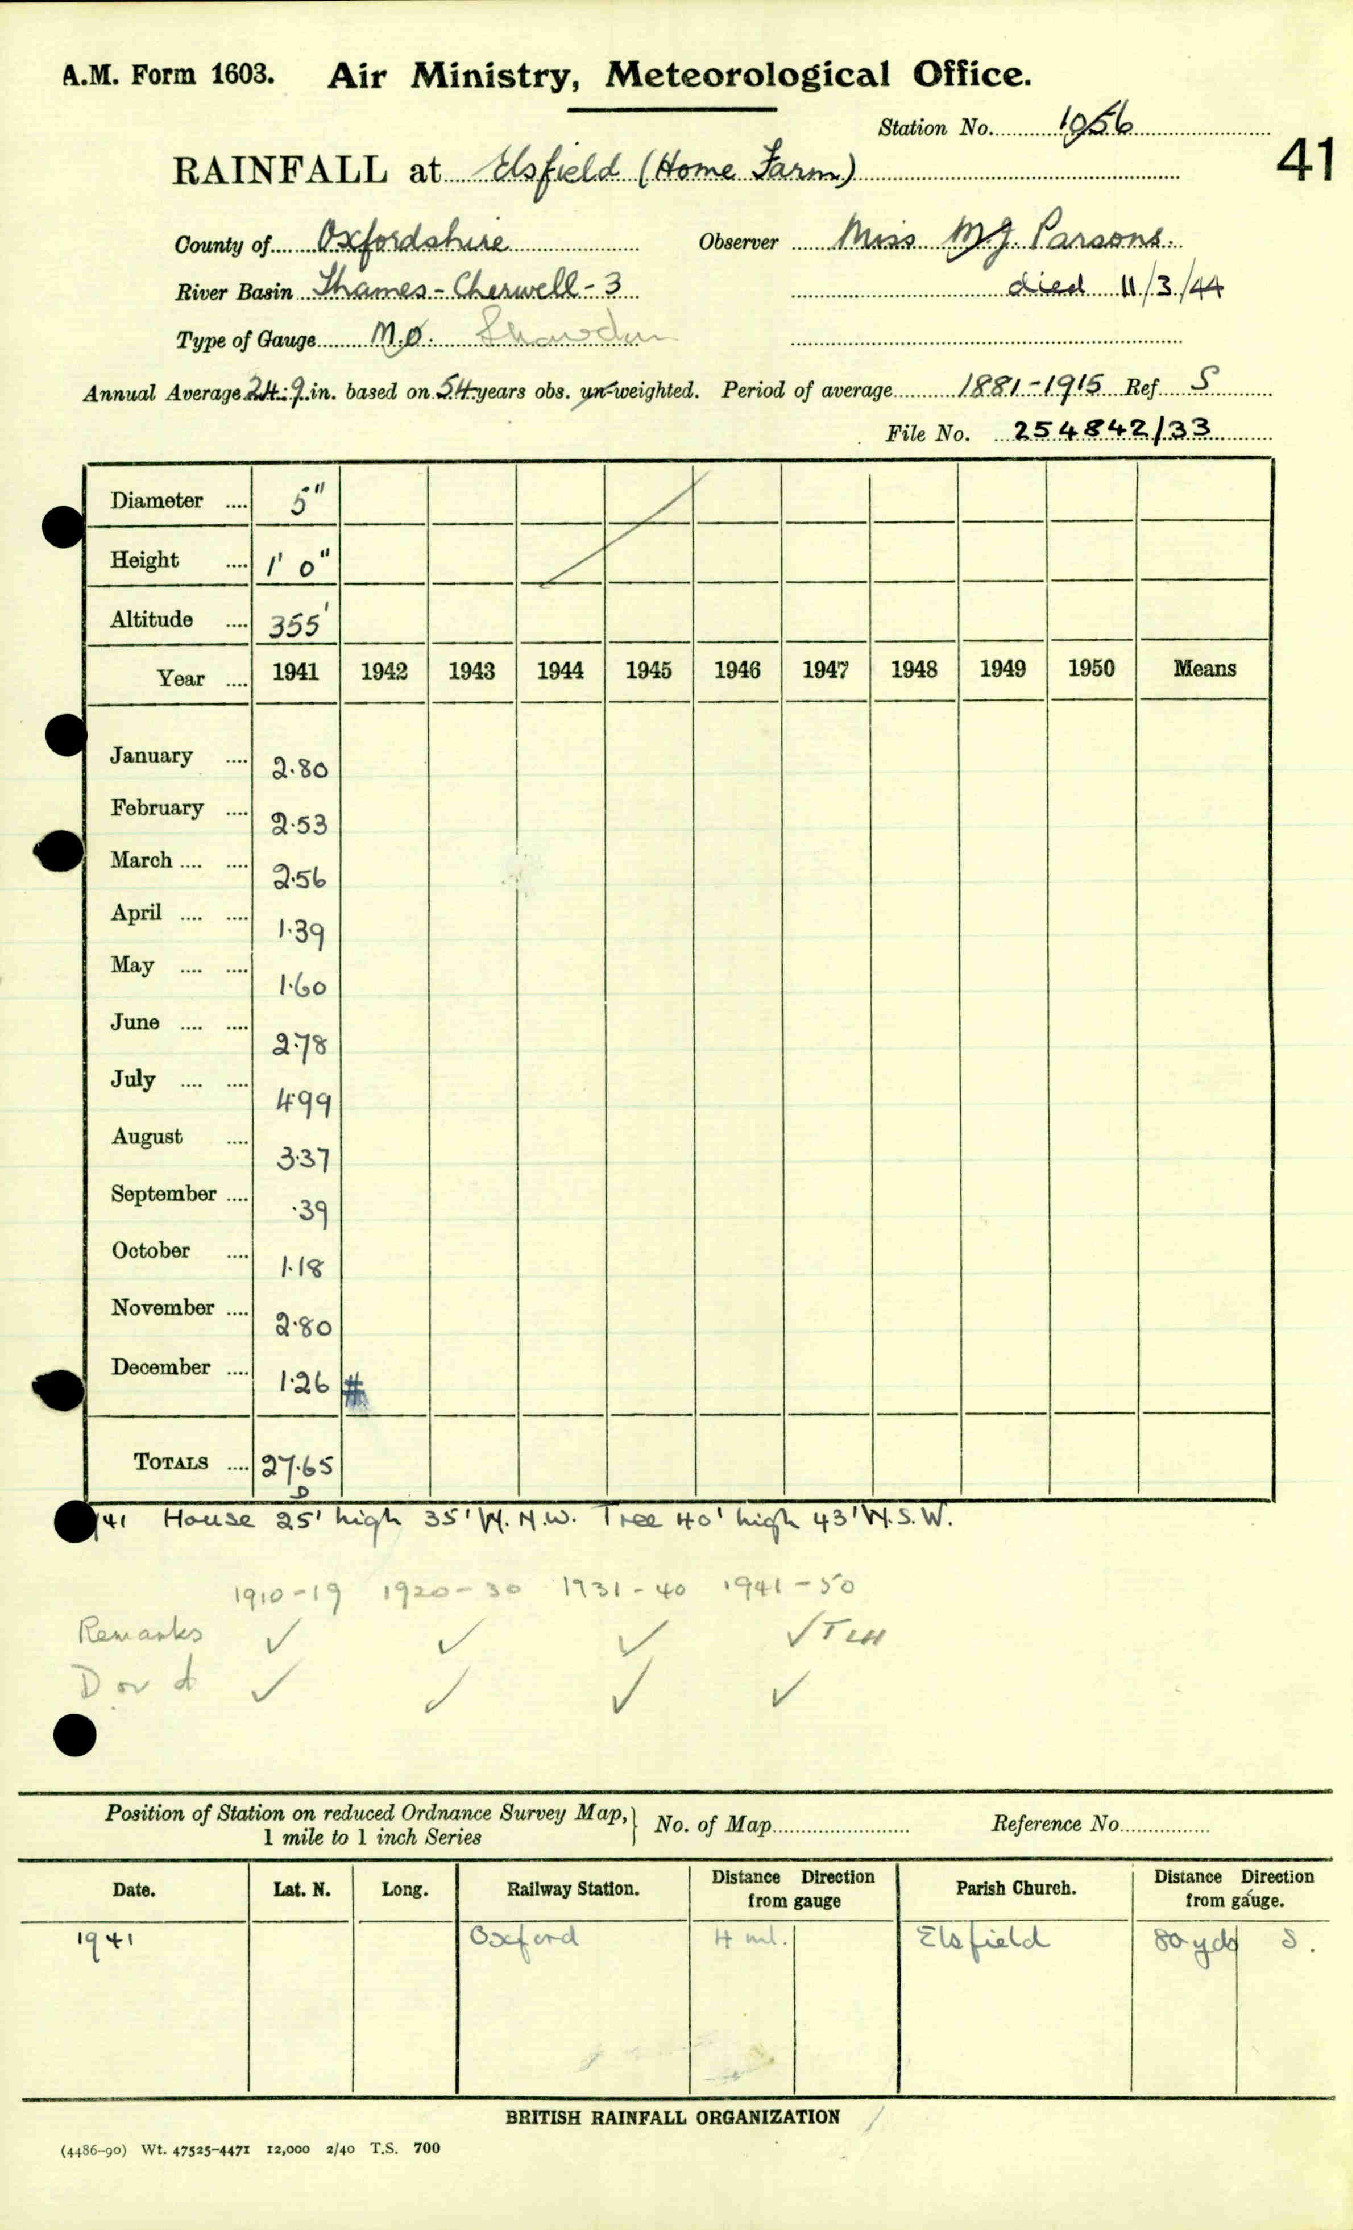 A.M. Form 1603. Air Ministry, Meteorological Office.
Station No. 1056
41
RAINFALL at Elsfield (Home Farm)
County of Oxfordshire Observer Miss M.J. Parsons.
River Basin Thames - Cherwell - 3 died 11/3/44
Type of Gauge M.O.
Annual Average 24.9 in. based on 54 years obs. un-weighted. Period of average 1881-1915 Ref S
File No. 254842/33
Diameter .... 5"
Height .... 1' 0"
Altitude .... 355'
Year .... 1941 1942 1943 1944 1945 1946 1947 1948 1949 1950 Means
January .... 2.80
February .... 2.53
March .... .... 2.56
April .... .... 1.39
May .... .... 1.60
June .... .... 2.78
July .... .... 4.99
August .... 3.37
September .... .39
October .... 1.18
November .... 2.80
December .... 1.26 #
TOTALS .... 27.65
D
/41 House 25' high 35' W.N.W. Tree 40' high 43' W.S.W.
1910-19 1920-30 1931-40 1941-50
Remarks ✓ ✓ ✓ ✓
D or d ✓ ✓ ✓ ✓
Position of Station on reduced Ordnance Survey Map, } No. of Map Reference No.
1 mile to 1 inch Series
Date. Lat. N. Long. Railway Station. Distance Direction from gauge Parish Church. Distance Direction from gauge.
1941 Oxford 4 ml. Elsfield 80 yds S.
BRITISH RAINFALL ORGANIZATION
(4486-90) Wt. 47525-4471 12,000 2/40 T.S. 700